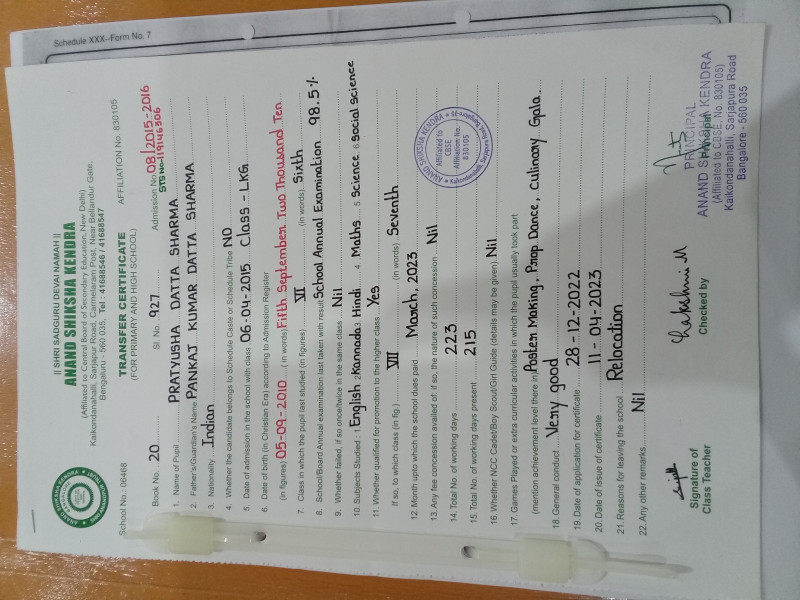 Schedule XXX--Form No. 7
|| SHRI SADGURU DEVAI NAMAH ||
ANAND SHIKSHA KENDRA
(Affiliated to Central Board of Secondary Education, New Delhi)
Kaikondanahalli, Sarjapur Road, Carmelaram Post, Near Bellandur Gate,
Bengaluru - 560 035, Tel : 41688546 / 41688547
TRANSFER CERTIFICATE
(FOR PRIMARY AND HIGH SCHOOL)
School No.: 06468
AFFILIATION No. 830105
Book No. 20 Sl. No. 927 Admission No. 08/2015-2016
STS No-119146506
1. Name of Pupil PRATYUSHA DATTA SHARMA
2. Father's/Guardian's Name PANKAJ KUMAR DATTA SHARMA
3. Nationality Indian
4. Whether the candidate belongs to Schedule Caste or Schedule Tribe NO
5. Date of admission in the school with class 06-04-2015 Class - LKG
6. Date of birth (in Christian Era) according to Admission Register
(in figures) 05-09-2010 (in words) Fifth September Two Thousand Ten
7. Class in which the pupil last studied (in figures) VI (in words) Sixth
8. School/Board Annual examination last taken with result School Annual Examination 98.5%
9. Whether failed, if so once/twice in the same class Nil
10. Subjects Studied : 1. English 2. Kannada 3. Hindi 4. Maths 5. Science 6. Social Science
11. Whether qualified for promotion to the higher class Yes
If so, to which class (in fig.) VII (in words) Seventh
12. Month upto which the school dues paid March, 2023
13. Any fee concession availed of: if so, the nature of such concession Nil
14. Total No. of working days 223
15. Total No. of working days present 215
16. Whether NCC Cadet/Boy Scout/Girl Guide (details may be given) Nil
17. Games Played or extra curricular activities in which the pupil usually took part
(mention achievement level there in) Poster Making, Pamp Dance, Culinary Gala.
18. General conduct Very good
19. Date of application for certificate 28-12-2022
20. Date of issue of certificate 11-04-2023
21. Reasons for leaving the school Relocation
22. Any other remarks Nil
ANAND SHIKSHA KENDRA
Affiliated to
CBSE
Affiliation No.
830105
Signature of
Class Teacher
Lakshmi M
Checked by
Principal
PRINCIPAL
ANAND SHIKSHA KENDRA
(Affiliated to CBSE, No. 830105)
Kaikondanahalli, Sarjapura Road
Bangalore - 560 035